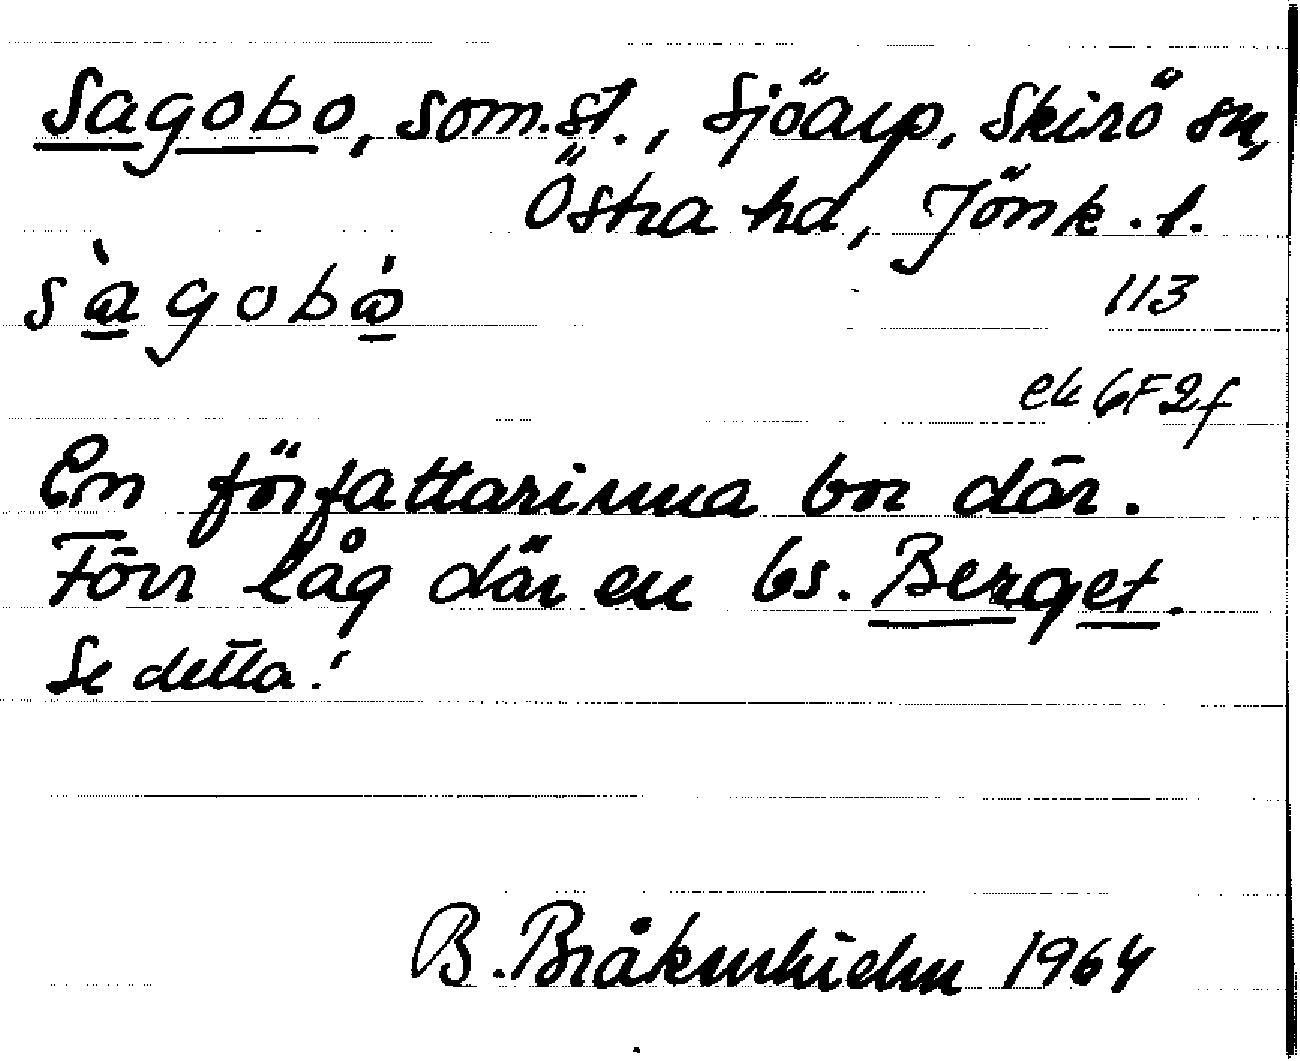 Sagobo, som.st., Sjöarp, Skirö sn,
Östra hd, Jönk. l.
sàgobȧ̀
113
ek 6F2f
En författarinna bor där.
Förr låg där en bs. Berget.
Se detta!
B. Bråkenhielm 1964